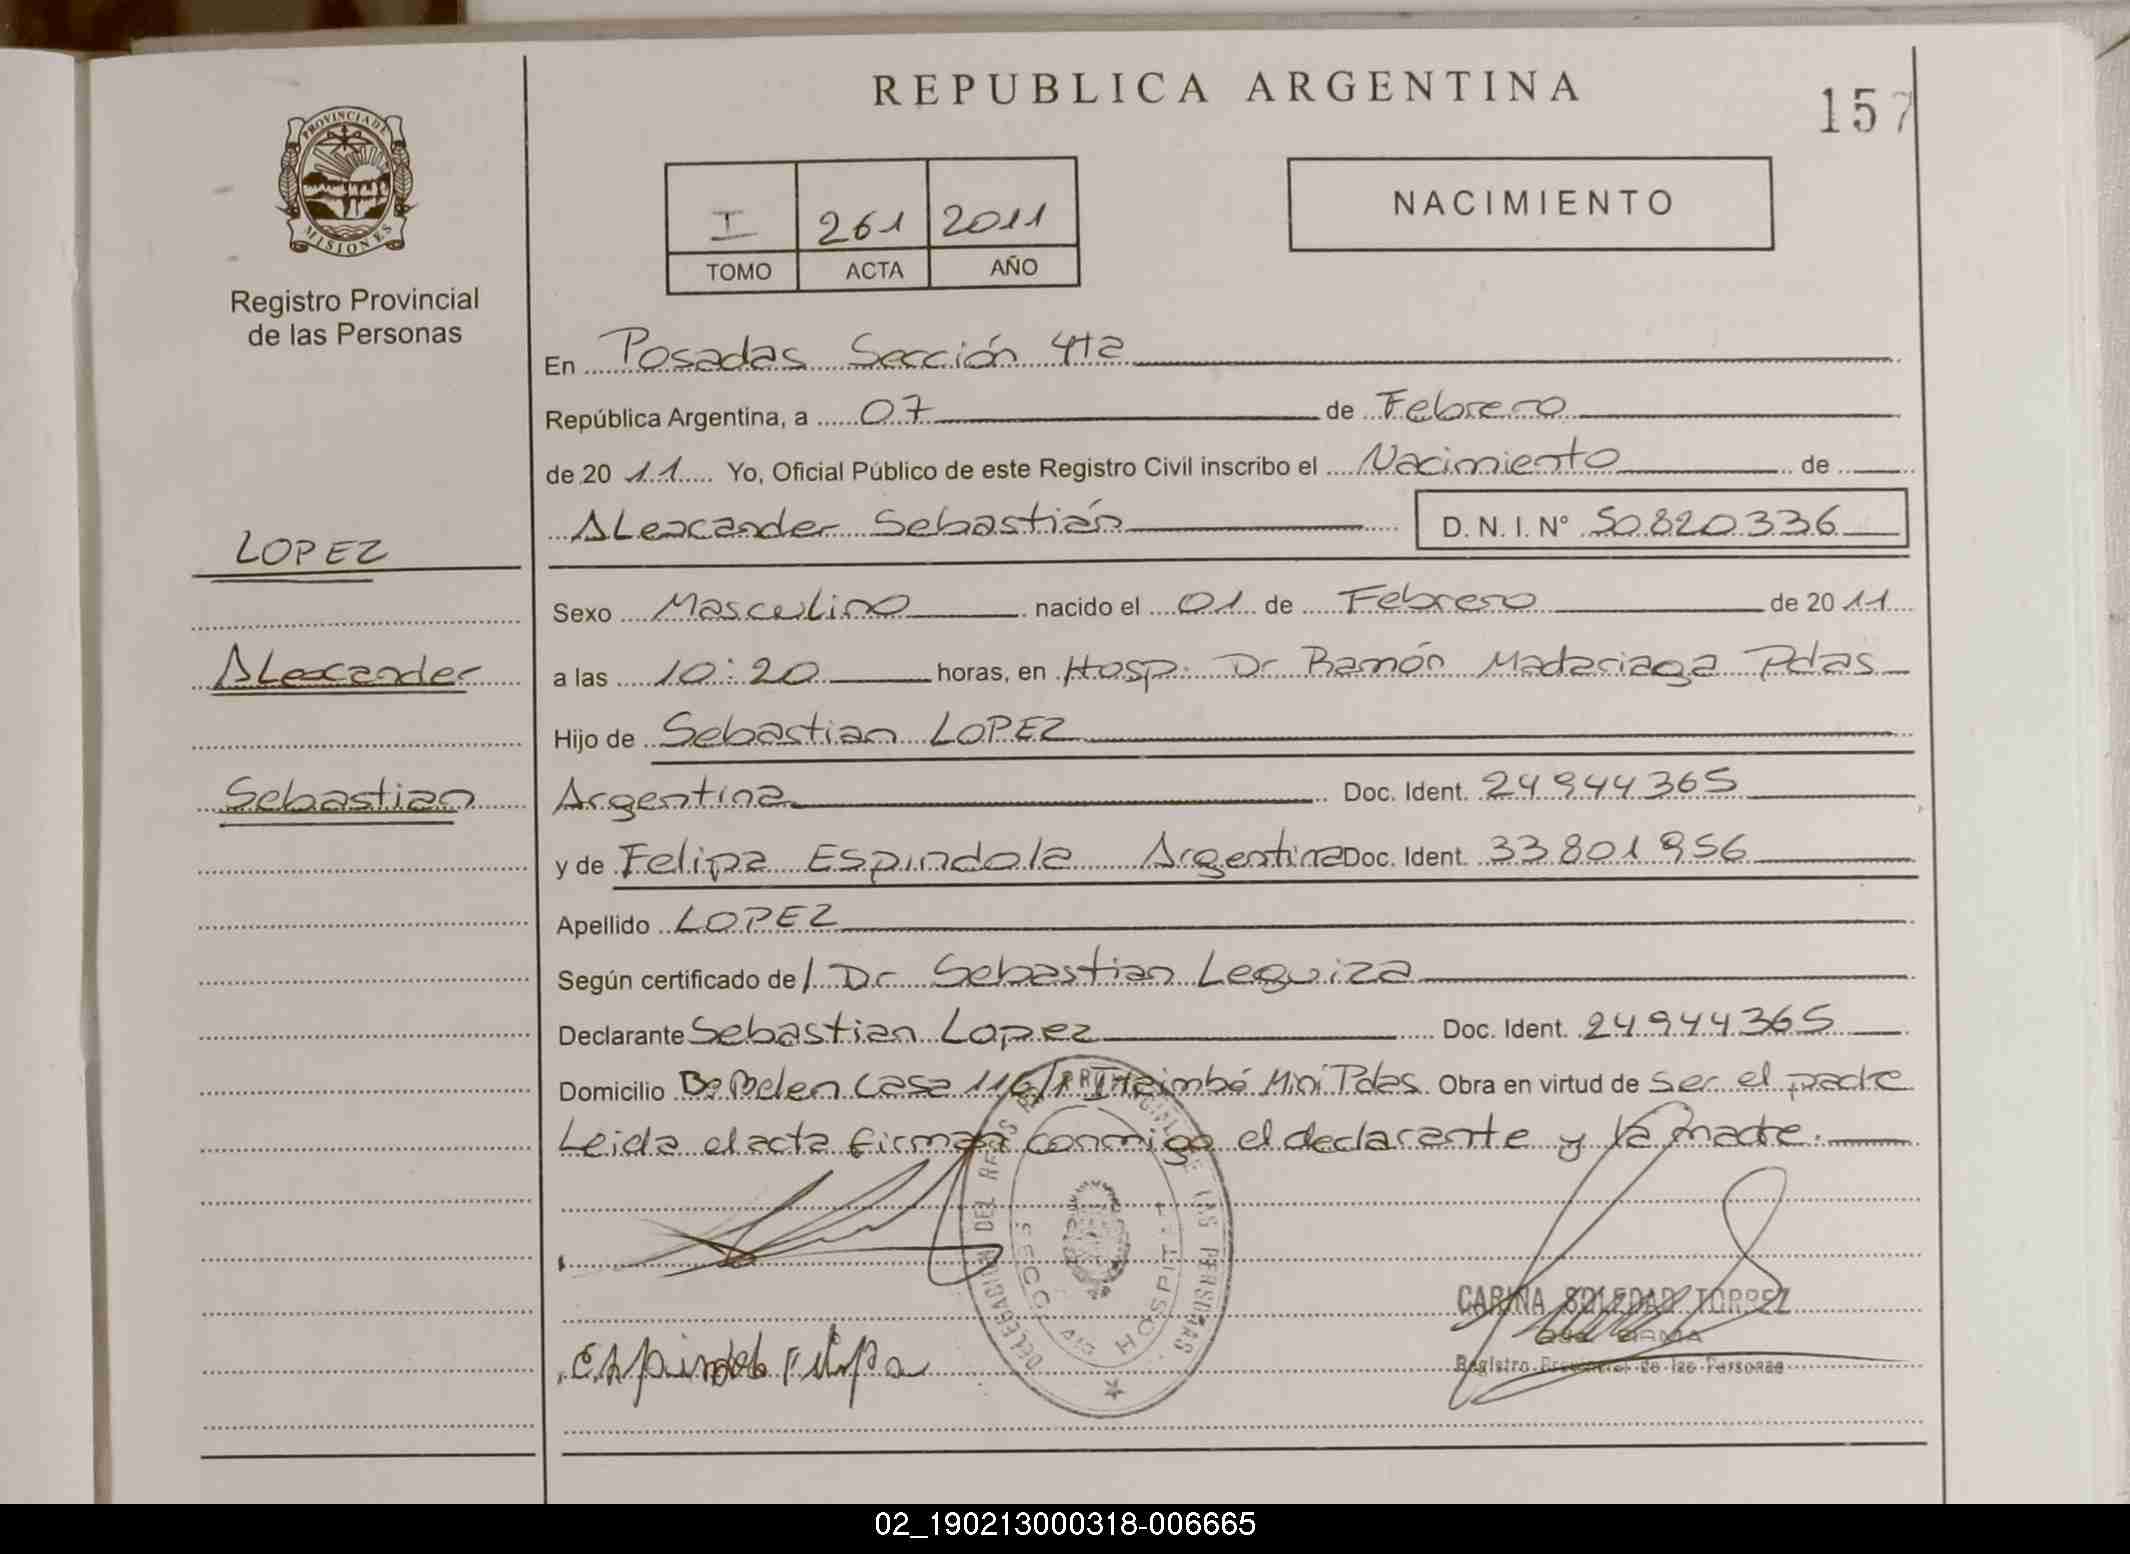 REPUBLICA ARGENTINA
157
PROVINCIA DE MISIONES
Registro Provincial
de las Personas
I 261 2011
TOMO ACTA AÑO
NACIMIENTO
En Posadas Sección 4ta
República Argentina, a 07 de Febrero
de 20 11 Yo, Oficial Público de este Registro Civil inscribo el Nacimiento de
Alexander Sebastián D. N. I. N° 50.820.336
LOPEZ
Alexander
Sebastian
Sexo Masculino nacido el 01 de Febrero de 20 11
a las 10:20 horas, en Hosp. Dr. Ramón Madariaga Pdas
Hijo de Sebastian LOPEZ
Argentina Doc. Ident. 24.944.365
y de Felipa Espindola Argentina Doc. Ident. 33.801.956
Apellido LOPEZ
Según certificado de Dr Sebastian Leguiza
Declarante Sebastian Lopez Doc. Ident. 24.944.365
Domicilio Bo Belen Casa 116 Itaimbé Miní Pdas. Obra en virtud de ser el padre
Leida el acta firman conmigo el declarante y la madre.
DELEGACION DEL REG PROVINCIAL DE LAS PERSONAS
SECC
HOSPITAL
CARINA SOLEDAD TORREZ
FIRMA
Registro Provincial de las Personas
Espindola Felipa
02_190213000318-006665